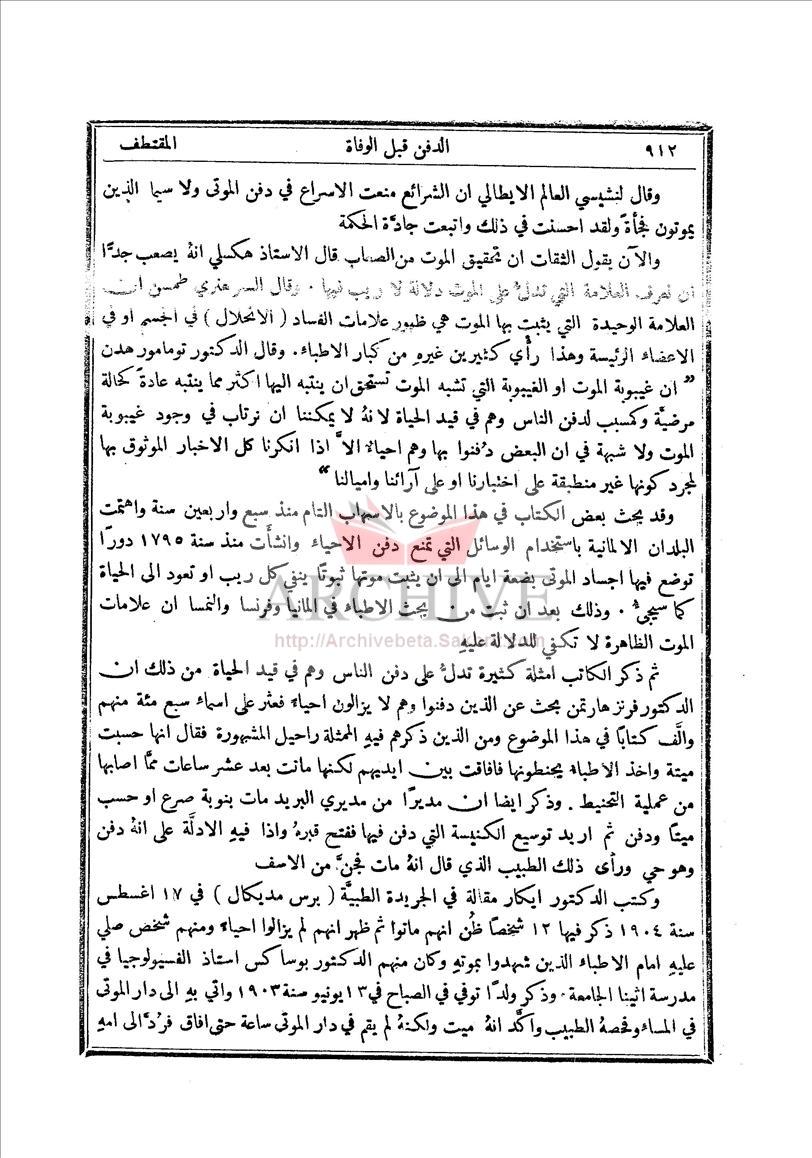 ٩١٢ الدفن قبل الوفاة المقتطف
وقال لنشيسي العالم الايطالي ان الشرائع منعت الاسراع في دفن الموتى ولا سيما الذين
يموتون فجأةً ولقد احسنت في ذلك واتبعت جادَّة الحكمة
والآن يقول الثقات ان تحقيق الموت من الصعاب قال الاستاذ هكسلي انهُ يصعب جدًّا
ان نعرف العلامة التي تدلُّ على الموت دلالة لا ريب فيها . وقال السر هنري طمسن ان
العلامة الوحيدة التي يثبت بها الموت هي ظهور علامات الفساد ( الانحلال ) في الجسم او في
الاعضاء الرئيسة وهذا رأي كثيرين غيرهِ من كبار الاطباء . وقال الدكتور تومامور هدن
” ان غيبوبة الموت او الغيبوبة التي تشبه الموت تستحق ان ينتبه اليها اكثر مما ينتبه عادةً كحالة
مرضيَّة وكسبب لدفن الناس وهم في قيد الحياة لانهُ لا يمكننا ان نرتاب في وجود غيبوبة
الموت ولا شبهة في ان البعض دُفنوا بها وهم احياءٌ الاَّ اذا انكرنا كل الاخبار الموثوق بها
لمجرد كونها غير منطبقة على اختبارنا او على آرائنا واميالنا “
وقد بحث بعض الكتاب في هذا الموضوع بالاسهاب التام منذ سبع واربعين سنة واهتمت
البلدان الالمانية باستخدام الوسائل التي تمنع دفن الاحياء وانشأت منذ سنة ١٧٩٥ دورًا
توضع فيها اجساد الموتى بضعة ايام الى ان يثبت موتها ثبوتًا ينفي كل ريب او تعود الى الحياة
كما سيجيءُ . وذلك بعد ان ثبت من بحث الاطباء في المانيا وفرنسا والنمسا ان علامات
الموت الظاهرة لا تكفي للدلالة عليهِ
ARCHIVE
http://Archivebeta.Sakhrit.com
ثم ذكر الكاتب امثلة كثيرة تدلُّ على دفن الناس وهم في قيد الحياة من ذلك ان
الدكتور فرنز هارتمن بحث عن الذين دفنوا وهم لا يزالون احياءً فعثر على اسماء سبع مئة منهم
والَّف كتابًا في هذا الموضوع ومن الذين ذكرهم فيهِ الممثلة راحيل المشهورة فقال انها حسبت
ميتة واخذ الاطباء يحنطونها فافاقت بين ايديهم لكنها ماتت بعد عشر ساعات ممَّا اصابها
من عملية التحنيط . وذكر ايضا ان مديرًا من مديري البريد مات بنوبة صرع او حسب
ميتًا ودفن ثم اريد توسيع الكنيسة التي دفن فيها ففتح قبرهُ واذا فيهِ الادلَّة على انهُ دفن
وهو حي ورأى ذلك الطبيب الذي قال انهُ مات فجنَّ من الاسف
وكتب الدكتور ايكار مقالة في الجريدة الطبيَّة ( برس مديكال ) في ١٧ اغسطس
سنة ١٩٠٤ ذكر فيها ١٢ شخصًا ظُن انهم ماتوا ثم ظهر انهم لم يزالوا احياءً ومنهم شخص صلي
عليهِ امام الاطباء الذين شهدوا بموتهِ وكان منهم الدكتور بوساكس استاذ الفسيولوجيا في
مدرسة اثينا الجامعة . وذكر ولدًا توفي في الصباح في ١٣ يونيو سنة ١٩٠٣ واتي بهِ الى دار الموتى
في المساء وفحصهُ الطبيب واكَّد انهُ ميت ولكنهُ لم يقم في دار الموتى ساعة حتى افاق فرُدَّ الى امهِ